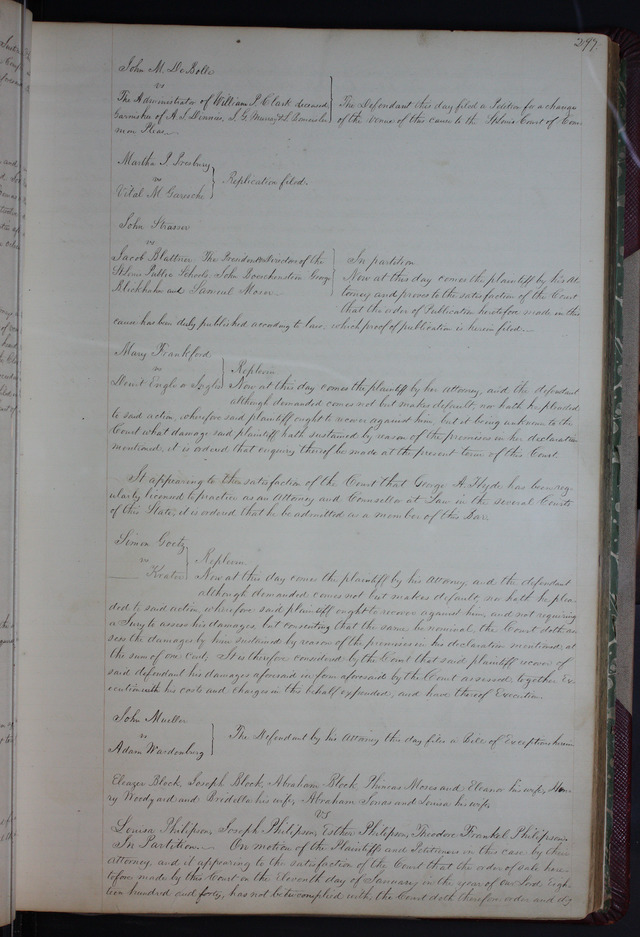 297.
John M. DeBolt
vs
The Administrator of William P. Clark deceased
Garnishee of A L Dennis, L G
mon Pleas.
The Defendant this day filed a Petition for a change
of the venue of this cause to the St Louis Court of Com
Martha I. Presbury
vs
Vital M. Garesche
Replication filed.
John Strasser
vs
Jacob Blattner The President & Directors of the
St Louis Public Schools John Doerchenstein George
Blickhahn and Samuel Moser
In partition
Now at this day comes the plaintiff by his At
torney and proves to the satisfaction of the Court
that the order of Publication heretofore made in this
cause has been duly published according to law, which proof of publication is herein filed.
Mary Frankford
vs
Replevin
Now at this day comes the plaintiff by her attorney, and the defendant
although demanded comes not but makes default, nor hath he pleaded
to said action, wherefore said plaintiff ought to recover against him, but it being unknown to the
Court what damage said plaintiff hath sustained by reason of the premises in her declaration
mentioned, it is ordered that enquiry thereof be made at the present term of this Court.
It appearing to the satisfaction of the Court that George A. Hyde has been reg-
ularly licensed to practice as an Attorney and Counsellor at Law in the several Courts
of this State, it is ordered that he be admitted as a member of this Bar.
Simon Goetz
vs
Krator
Replevin
Now at this day comes the plaintiff by his Attorney, and the defendant
although demanded comes not but makes default, nor hath he plea-
ded to said action, wherefore said plaintiff ought to recover against him, and not requiring
a Jury to assess his damages, but consenting that the same be nominal, the Court doth as
sess the damages by him sustained by reason of the premises in his declaration mentioned, at
the sum of one cent; It is therefore considered by the Court that said plaintiff recover of
said defendant his damages aforesaid in form aforesaid by the Court assessed, together
with his costs and charges in this behalf expended, and have thereof Execution.
John Mueller
vs
Adam Wardenburg
The Defendant by his Attorney this day files a Bill of Exceptions herein
Eleazer Block, Joseph Block, Abraham Block Phineas Moses and Eleanor his wife, Hen-
ry Woodyard and Bridella his wife, Abraham Jonas and Louisa his wife
VS
Louisa Philipson, Joseph Philipson, Esther Philipson, Theodore Frankel Philipson,
In Partition. On motion of the Plaintiffs and Petitioners in this case by their
attorney, and it appearing to the satisfaction of the Court that the order of sale here
tofore made by this Court on the Eleventh day of January in the year of our Lord Eigh
teen hundred and forty, has not been complied with, the Court doth therefore order and di